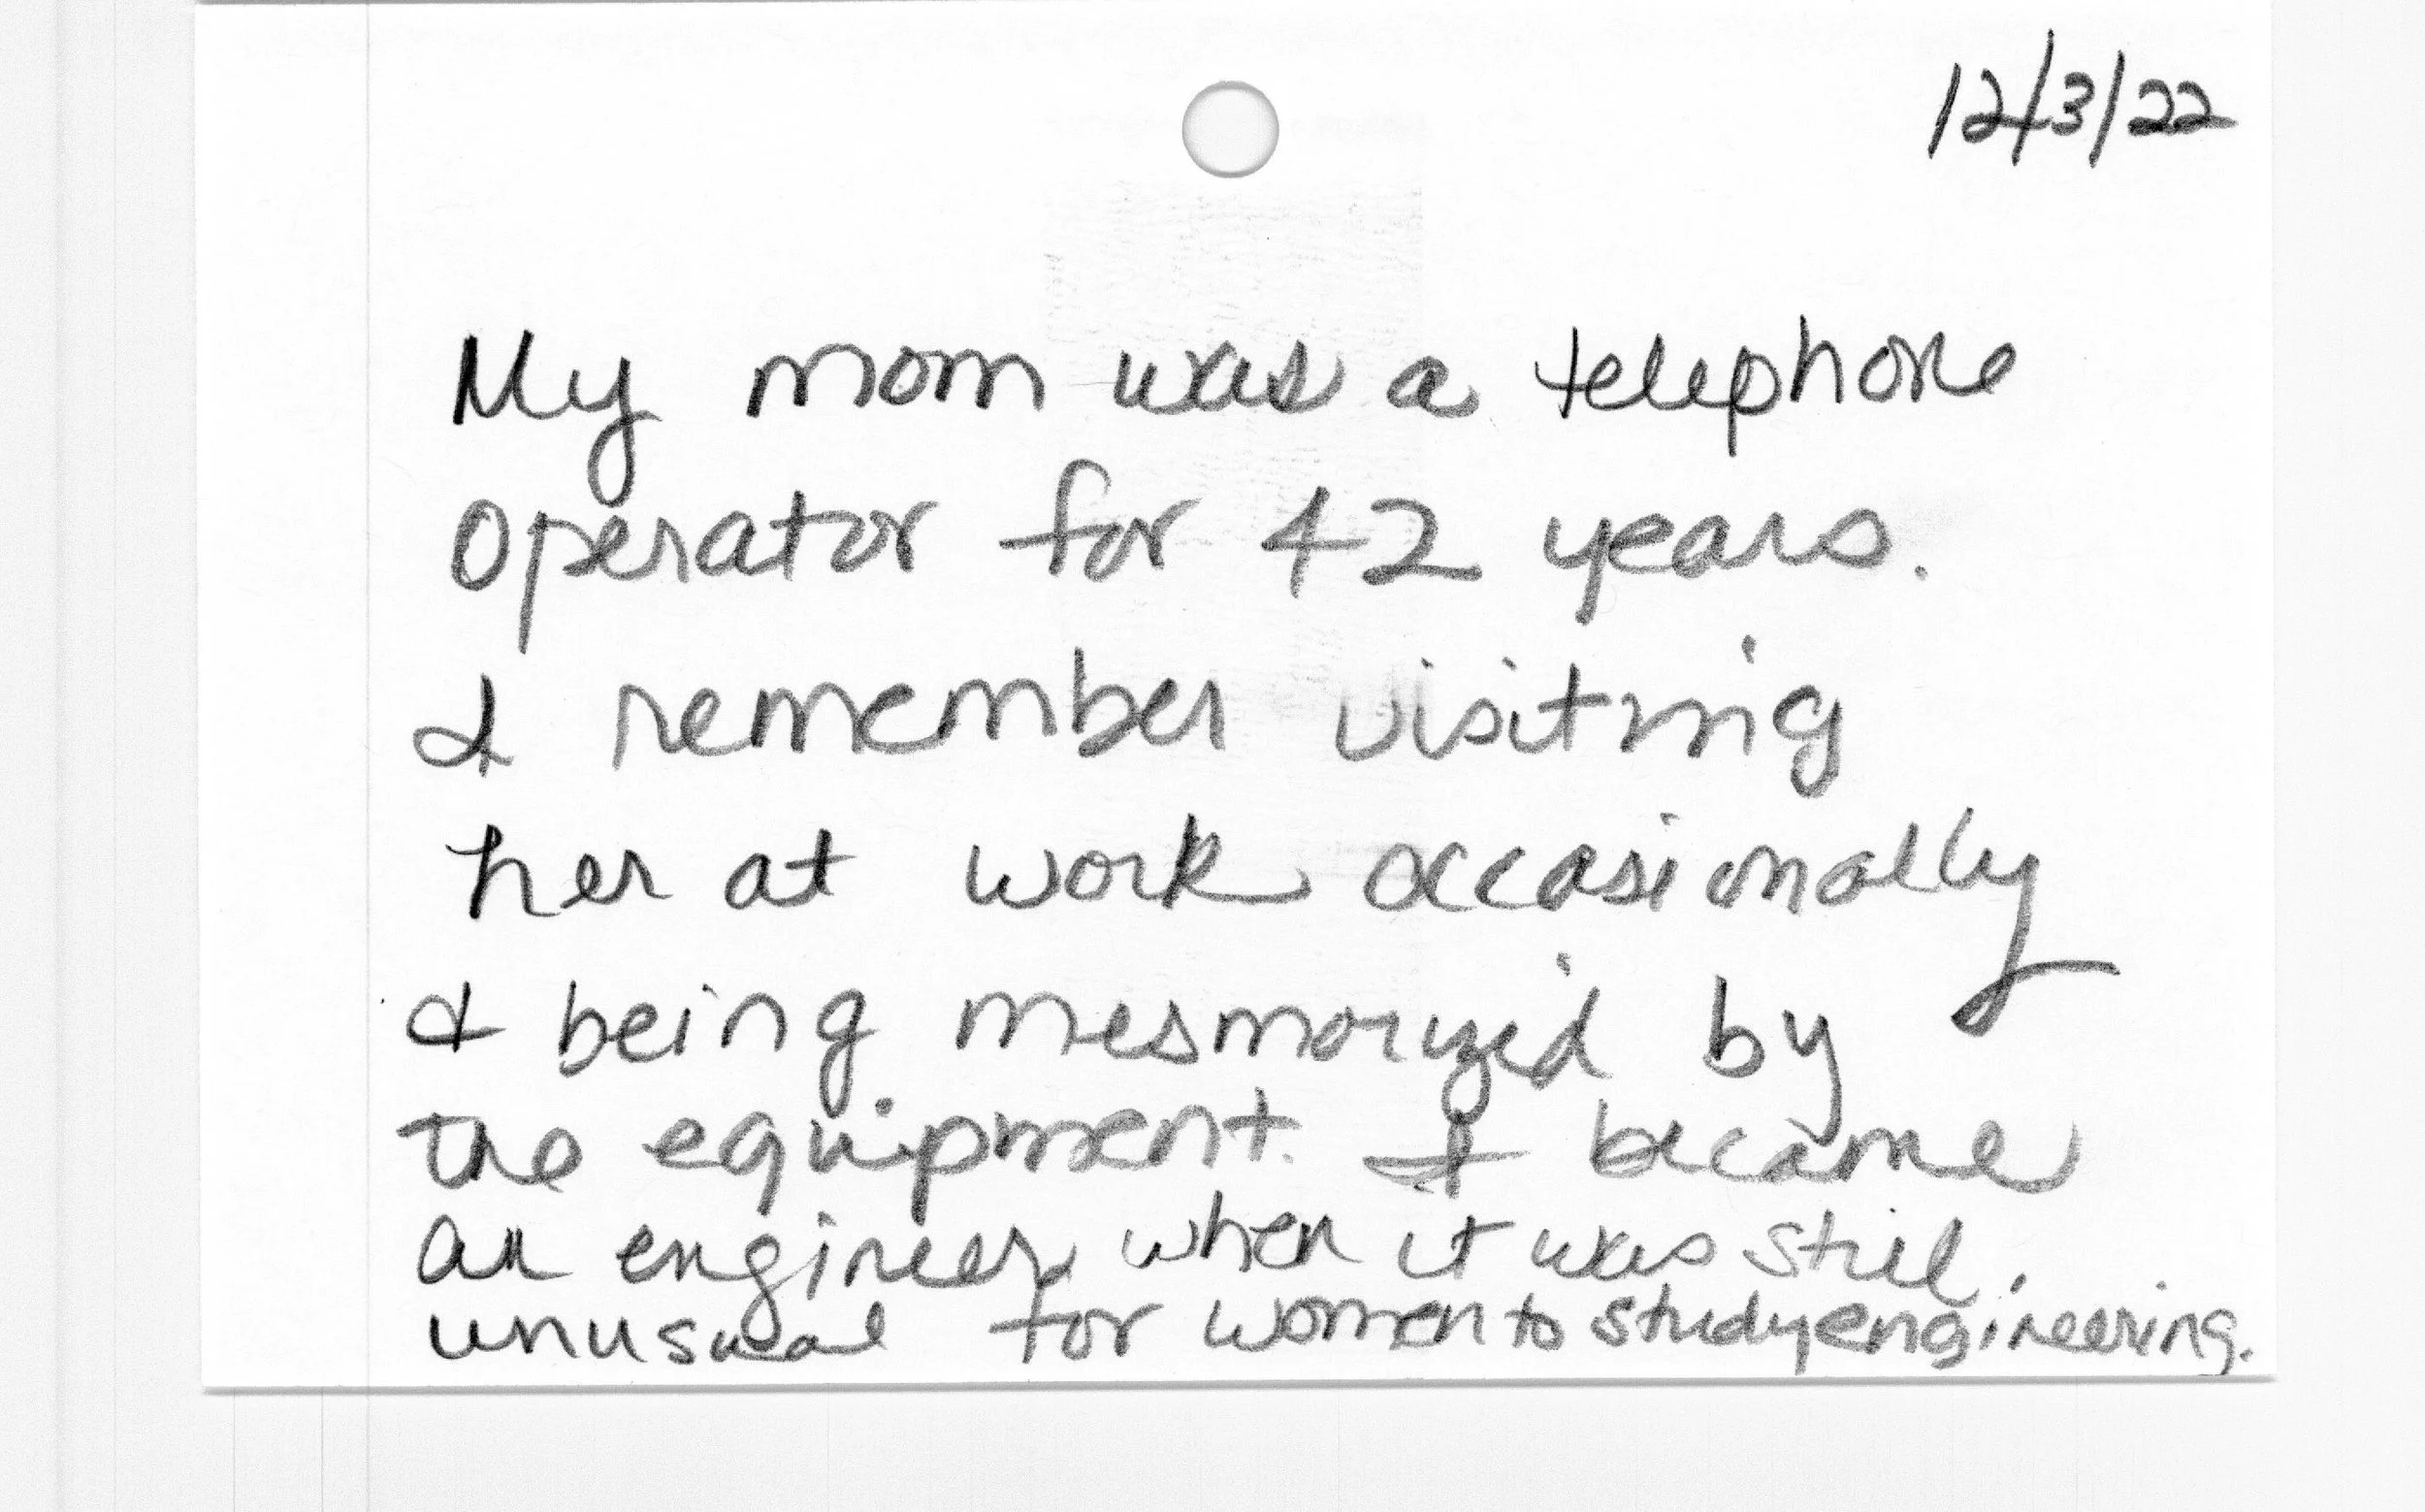 12/3/22
My mom was a telephone
Operator for 42 years.
I remember visiting
her at work occasionally
& being mesmorized by
the equipment. I became
an engineer when it was still
unusual for women to study engineering.